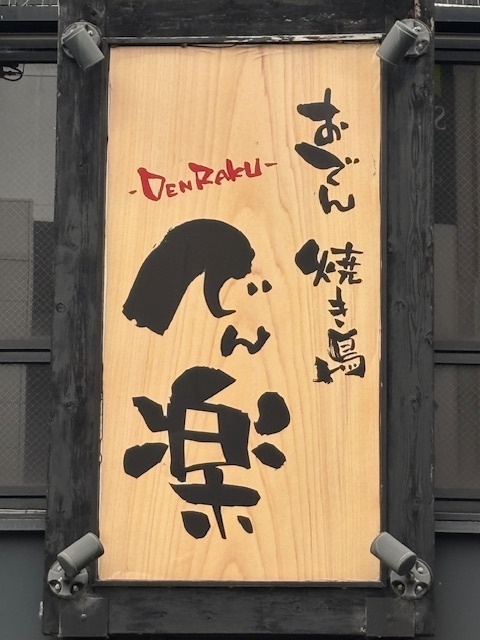 おでん 焼き鳥
-DENRAKU-
でん楽